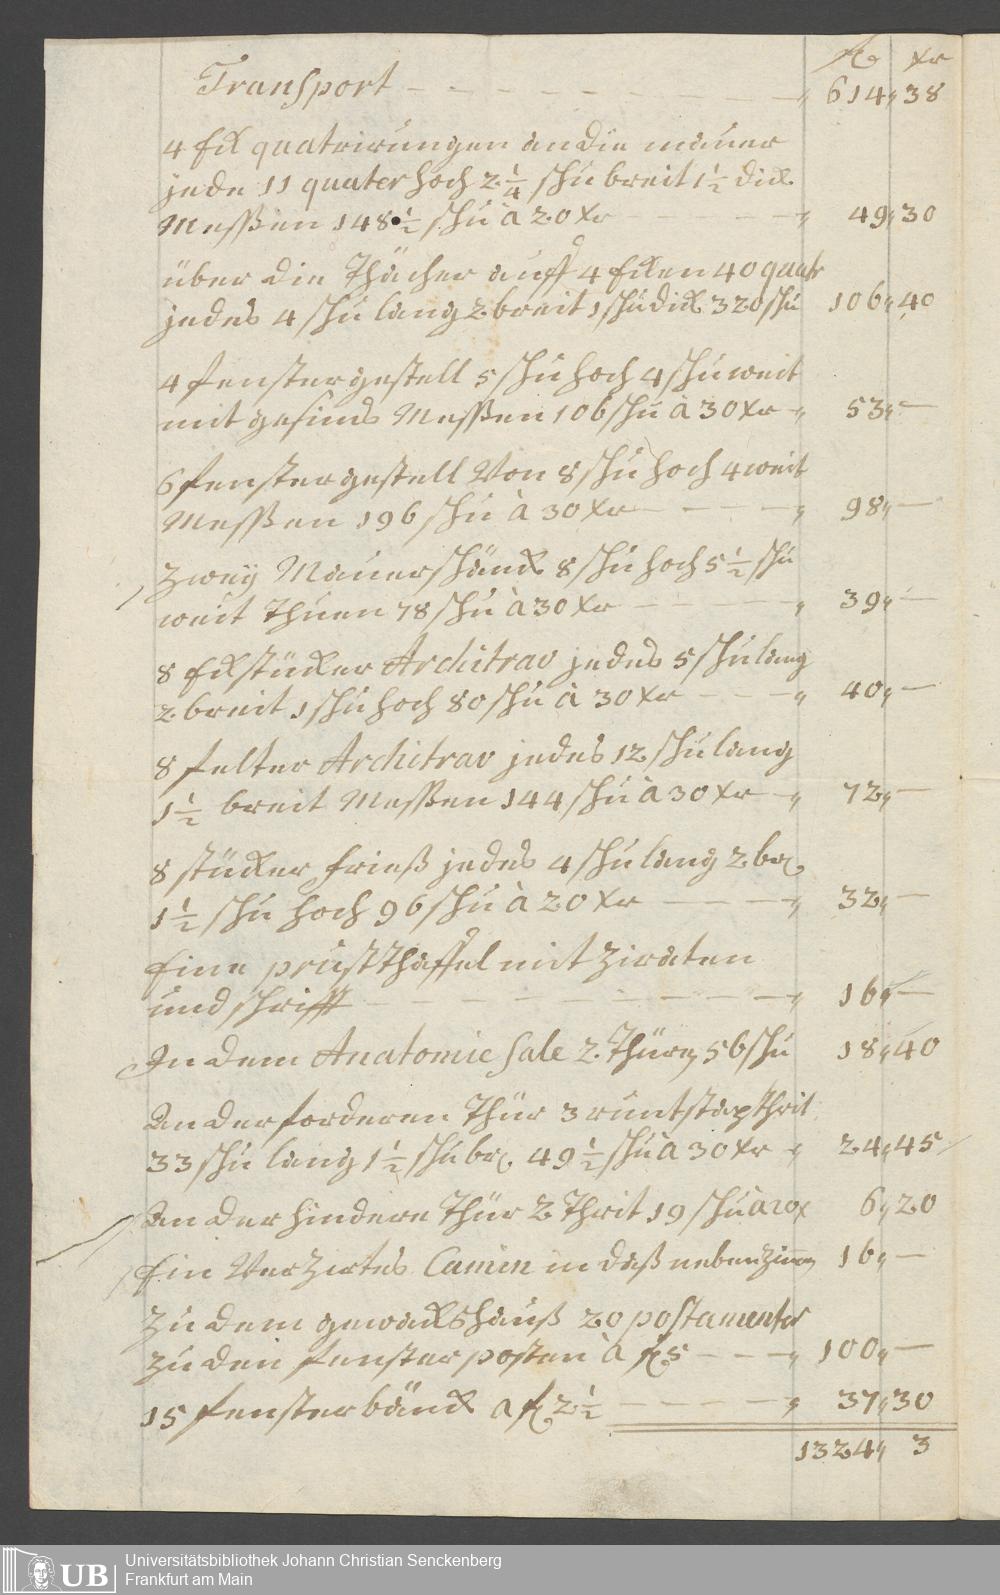 fl xr
Transport 614 38
4 Eck quatrirungen an die mauer
jede 11 quater hoch 2 1/4 schu breit 1 1/2 dick
Messen 148 1/2 schu à 20 xr 49 30
über die Thächer auff 4 Ecken 40 quatr
jedes 4 schu lang 2 breit 1 schu dick 320 schu 106 40
4 fenstergestell 5 schu hoch 4 schu weit
mit gesims Messen 106 schu à 30 xr 53 —
6 fenstergestell Von 8 schu hoch 4 weit
Messen 196 schu à 30 xr 98 —
Zweÿ Mauerschänck 8 schu hoch 5 1/2 schu
weit Thuen 78 schu à 30 xr 39 —
8 Eckstücker Architrav jedes 5 schu lang
2 breit 1 schu hoch 80 schu à 30 xr 40 —
8 felter Architrav jedes 12 schu lang
1 1/2 breit Messen 144 schu à 30 xr 72 —
8 stücker frieß jedes 4 schu lang 2 br.
1 1/2 schu hoch 96 schu à 20 xr 32 —
Eine prustthaffel mit Ziraten
und schrifft 16 —
In dem Anatomie Sale 2 Thüren 56 schu 18 40
An der forderen Thür 3 runt thrit
33 schu lang 1 1/2 schu br. 49 1/2 schu à 30 xr 24 45
An der hindere Thür 2 Thrit 19 schu à 20 x 6 20
Ein Verzirtes Camin in daß nebenzimer 16 —
Zu dem gewackshauß 20 postamenter
Zu den fensterposten à fl 5 100 —
15 fensterbänck a fl 2 1/2 37 30
1324 3
UB
Universitätsbibliothek Johann Christian Senckenberg
Frankfurt am Main